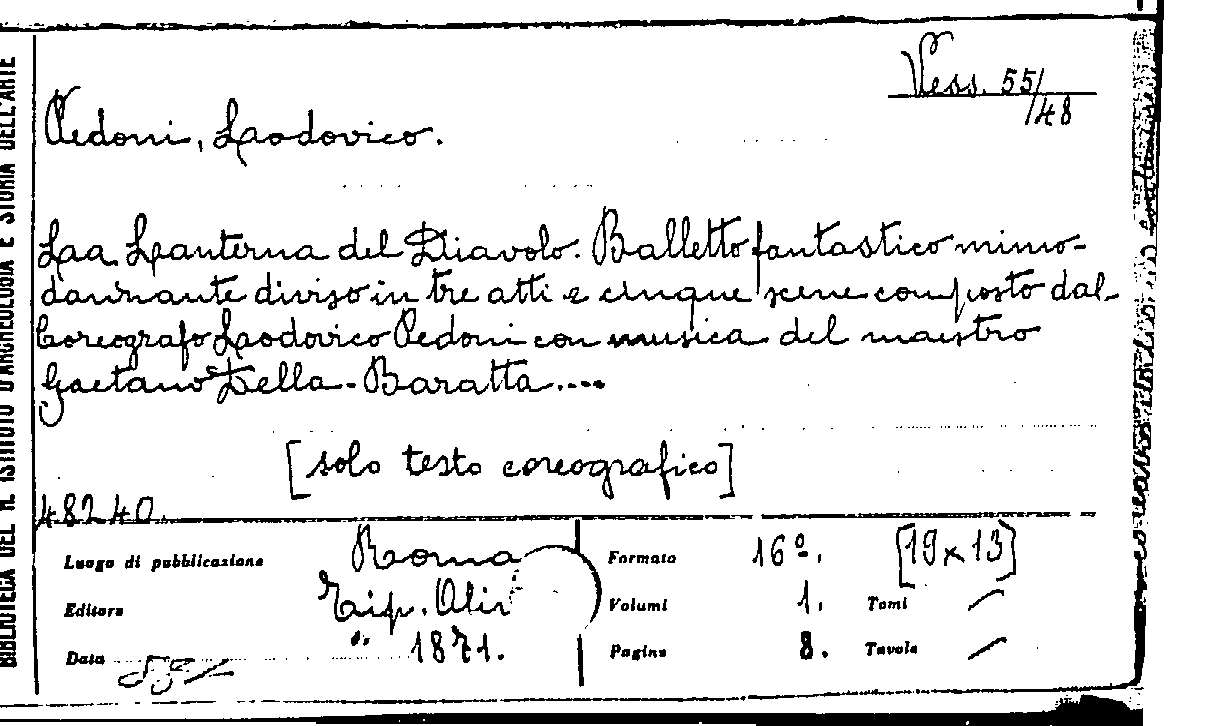 Vess. 55/48
Pedoni, Lodovico.
La Lanterna del Diavolo. Balletto fantastico mimo-
danzante diviso in tre atti e cinque scene composto dal
Coreografo Lodovico Pedoni con musica del maestro
Gaetano Della-Baratta....
[solo testo coreografico]
48240.
Luogo di pubblicazione Roma Formato 16º. [19x13]
Editore Tip. Volumi 1. Tomi /
Data " 1871. Pagine 8. Tavole /
BIBLIOTECA DEL R. ISTITUTO D'ARCHEOLOGIA E STORIA DELL'ARTE